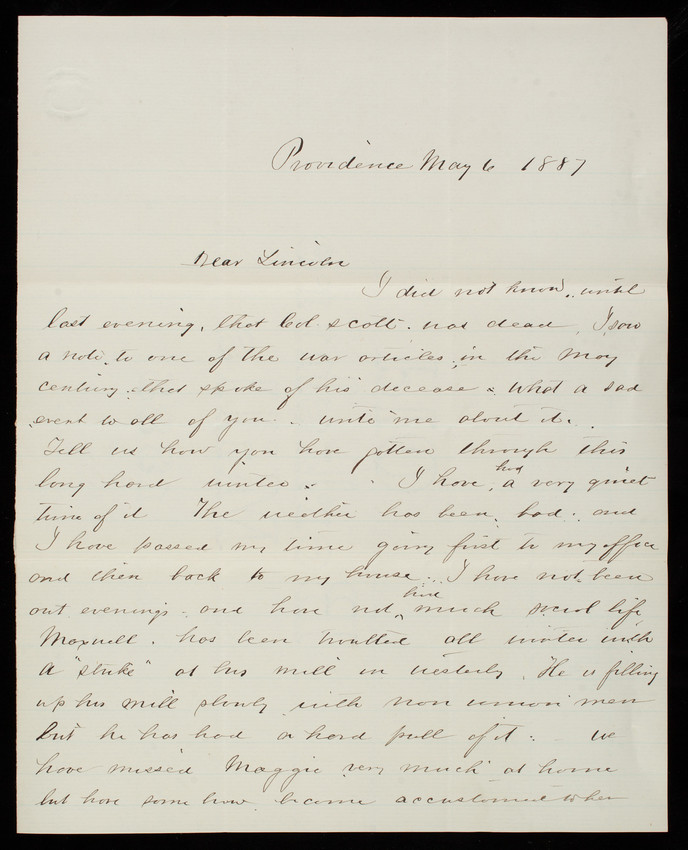 Providence May 6 1887
Dear Lincoln
I did not know, until
last evening, that Col. Scott. was dead, I saw
a note to one of the war articles, in the May
century that spoke of his decease & what a sad
event to all of you. write me about it.
Tell us how you have gotten through this
long hard winter. I have had a very quiet
time of it The weather has been bad. and
I have passed my time going first to my office
and then back to my house. I have not been
out evenings and have not had much social life
Maxwell. has been troubled all winter with
a "strike" at his mill in Westerly. He is filling
up his mill slowly with non union men
but he has had a hard pull of it: we
have missed Maggie very much at home
but have some how become accustomed to her